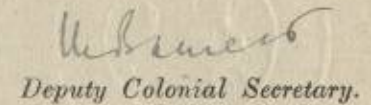 Deputy Colonial Secretary.